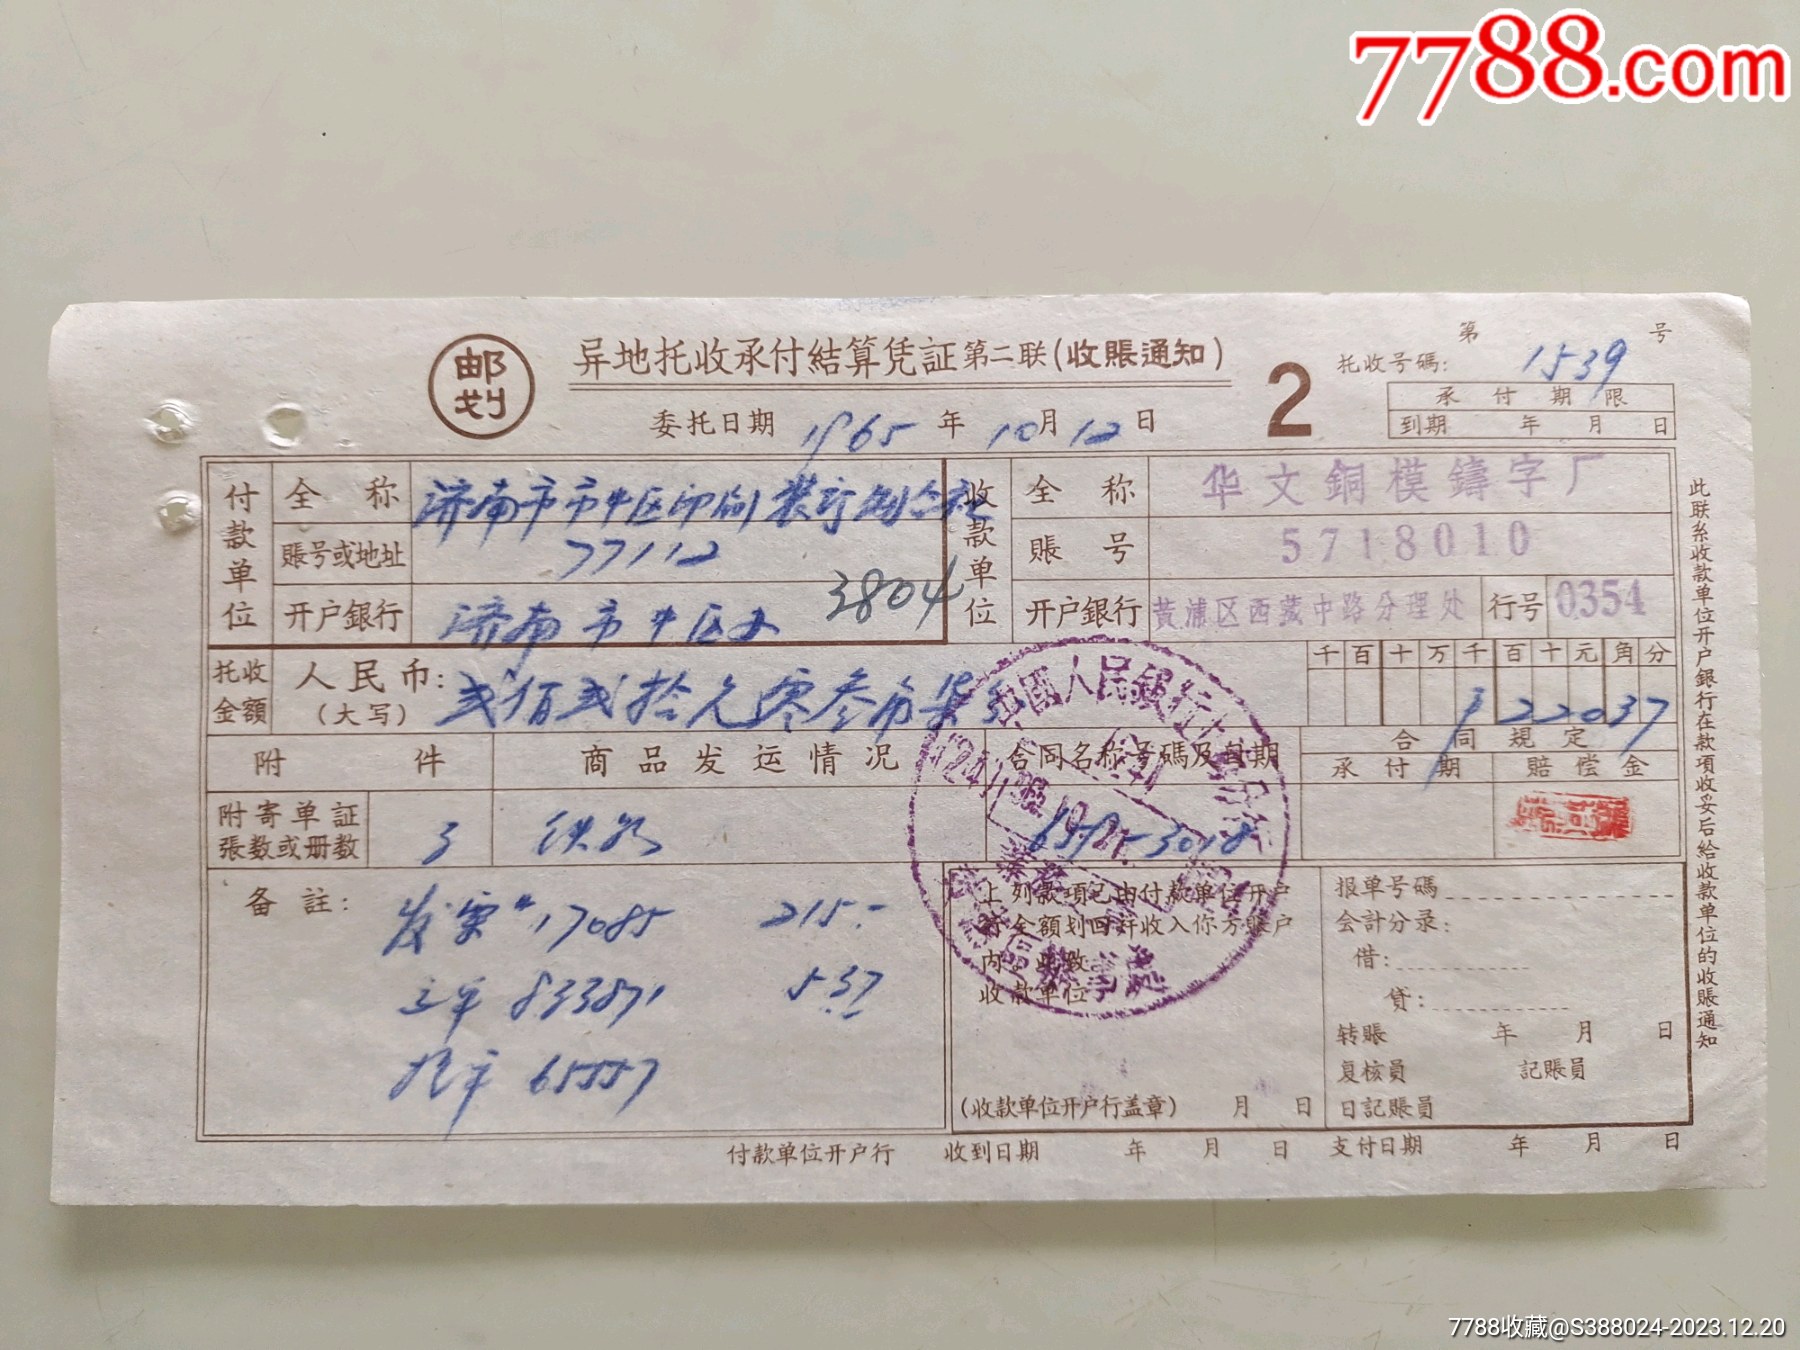 7788.com
邮划
异地托收承付結算凭証第二联(收賬通知)
2
第 号
托收号碼: 1539
承付期限
到期 年 月 日
委托日期 1965 年 10 月 12 日
付款单位
全称 济南市市中区印刷装订
賬号或地址 77112
开户銀行 济南市中区办 3804
收款单位
全称 华文銅模鑄字厂
賬号 5718010
开户銀行 黄浦区西藏中路分理处 行号 0354
托收金額 人民币:(大写) 贰佰贰拾元零叁角柒分
千百十万千百十元角分
22037
附件 商品发运情况 合同名称号碼及日期 合同規定
承付期 賠偿金
附寄单証張数或册数 3
备註:
发票# 17085 215.-
833871 5.37
65557
中國人民銀行
上列款項已由付款单位开户
行全額划回并收入你方賬户
内。此致
收款单位
(收款单位开户行盖章) 月 日
报单号碼
会計分录:
借:
貸:
转賬 年 月 日
复核員 記賬員
日記賬員
付款单位开户行 收到日期 年 月 日 支付日期 年 月 日
此联系收款单位开户銀行在款項收妥后給收款单位的收賬通知
7788收藏@S388024-2023.12.20